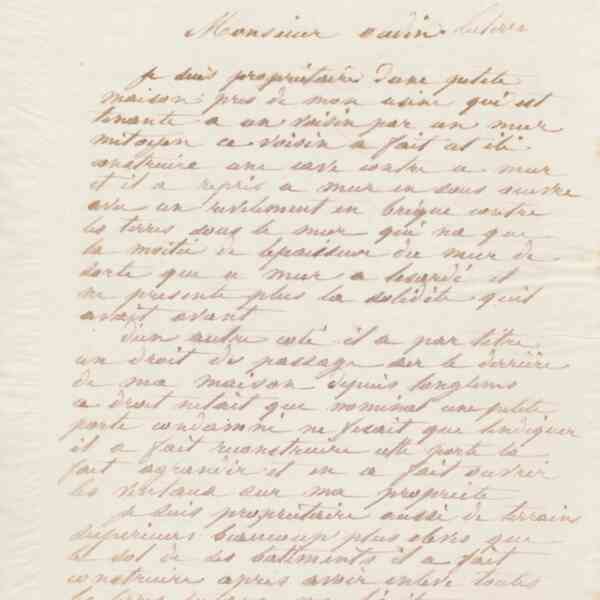 Monsieur oudin
je suis propriétaire d'une petite
maison pres de mon usine qui est
tenante a un voisin par un mur
mitoyen ce voisin a fait
construire une cave contre ce mur
et il a repris ce mur en sous œuvre
avec un revetement en brique contre
les terres sous le mur qui na que
la moitié de lepaisseur du mur de
sorte que ce mur a lesardé et
ne presente plus la solidité quil
avait avant
d'un autre coté il a par titre
un droit de passage sur le derrière
de ma maison depuis longtems
ce droit netait que nominal une petite
porte condamné ne fesait que lindiquer
il a fait reconstruire cette porte la
fait agrandir et en a fait ouvrir
les ventaux sur ma propriete
je suis propriétaire aussi de terrains
superieurs beaucoup plus elevés que
le sol de ses batiments il a fait
construire apres avoir enlevé toutes
les terres